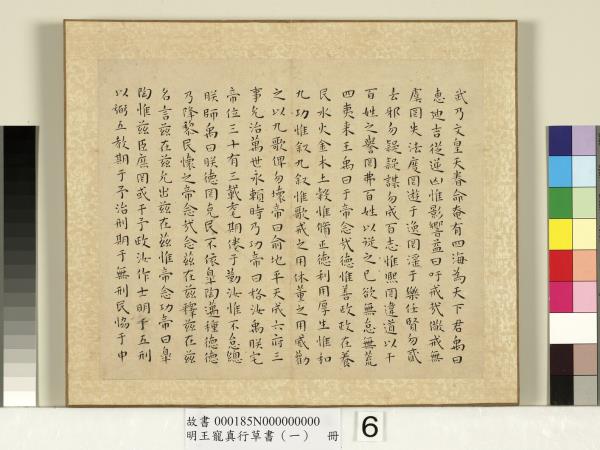 武乃文皇天眷命奄有四海為天下君禹曰
惠迪吉從逆凶惟影響益曰吁戒哉儆戒無
虞罔失法度罔遊于逸罔淫于樂任賢勿貳
去邪勿疑疑謀勿成百志惟熙罔違道以干
百姓之譽罔弗百姓以從之己欲無怠無荒
四夷来王禹曰于帝念哉德惟善政政在養
民水火金木土穀惟脩正德利用厚生惟和
九功惟叙九叙惟歌戒之用休董之用威勸
之以九歌俾勿壞帝曰俞地平天成六府三
事允治萬世永賴時乃功帝曰格汝禹朕宅
帝位三十有三載耄期倦于勤汝惟不怠總
朕師禹曰朕德罔克民不依皐陶邁種德德
乃降黎民懷之帝念哉念兹在兹釋兹在兹
名言兹在兹允出兹在兹惟帝念功帝曰皐
陶惟兹臣庶罔或干予政汝作士明于五刑
以弼五教期于予治刑期于無刑民協于中
故書 000185N000000000
明王寵真行草書(一) 冊
6